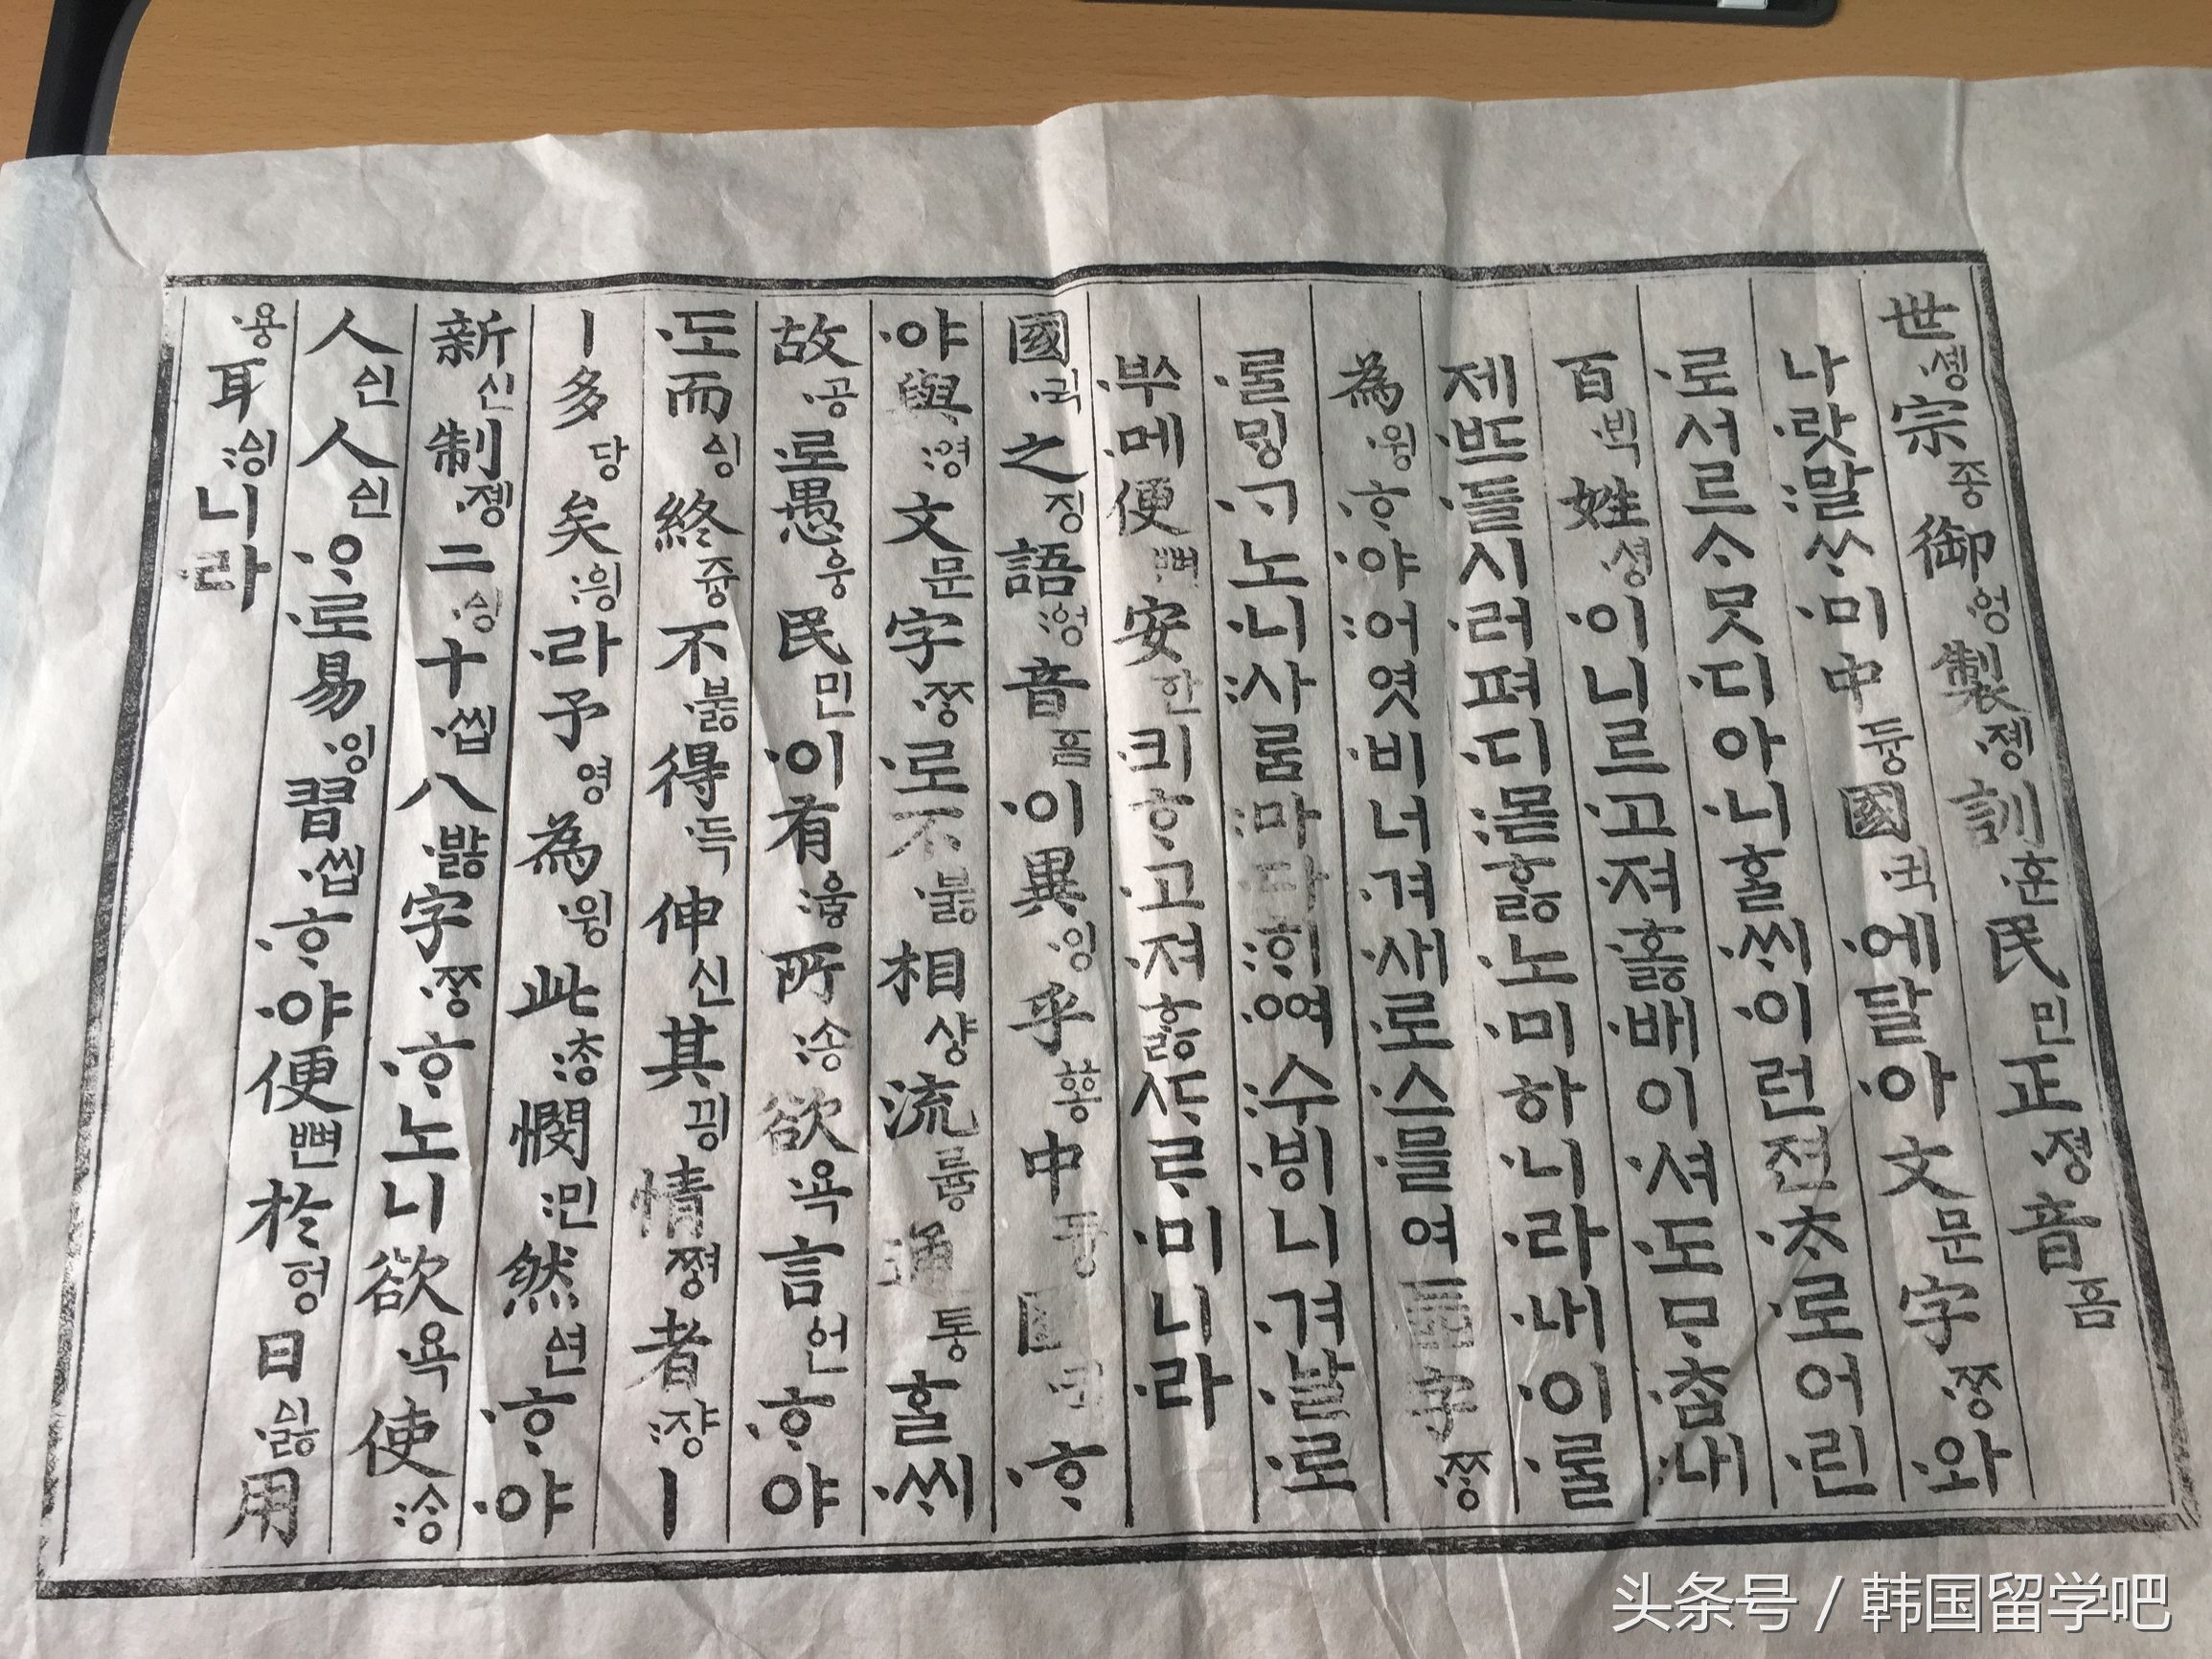 世솅宗종御ᅌᅥᆼ製졩訓훈民민正졍音ᅙᅳᆷ
나랏말ᄊᆞ미中듕國귁에달아文문字ᄍᆞᆼ와
로서르ᄉᆞᄆᆞᆺ디아니ᄒᆞᆯᄊᆡ이런젼ᄎᆞ로어린
百ᄇᆡᆨ姓셩이니르고져호ᇙ배이셔도ᄆᆞᄎᆞᆷ내
제ᄠᅳ들시러펴디몯ᄒᆞᇙ노미하니라내이ᄅᆞᆯ
為윙ᄒᆞ야어엿비너겨새로스믈여듧字ᄍᆞᆼ
ᄅᆞᆯᄆᆡᇰᄀᆞ노니사ᄅᆞᆷ마다ᄒᆡᅇᅧ수ᄫᅵ니겨날로
ᄡᅮ메便뼌安ᅙᅡᆫ킈ᄒᆞ고져ᄒᆞᇙᄯᆞᄅᆞ미니라
國귁之징語ᅌᅥᆼ音ᅙᅳᆷ이異잉乎ᅘᅩᆼ中듕國귁ᄒᆞ
야與영文문字ᄍᆞᆼ로不부ᇙ相샹流류ᇢ通통ᄒᆞᆯᄊᆡ
故공로愚ᅌᅮᆼ民민이有우ᇢ所송欲욕言언ᄒᆞ야
도而ᅀᅵᆼ終즁不부ᇙ得득伸신其끵情쪙者쟝ㅣ
ㅣ多당矣ᅌᅴᆼ라予영為윙此ᄎᆞᆼ憫민然ᅀᅧᆫᄒᆞ야
新신制졩二ᅀᅵᆼ十씹八바ᇙ字ᄍᆞᆼᄒᆞ노니欲욕使ᄉᆞᆼ
人ᅀᅵᆫ人ᅀᅵᆫᄋᆞ로易잉習씹ᄒᆞ야便뼌於ᅙᅥᆼ日ᅀᅵᇙ用
용耳ᅀᅵᆼ니라
头条号 / 韩国留学吧